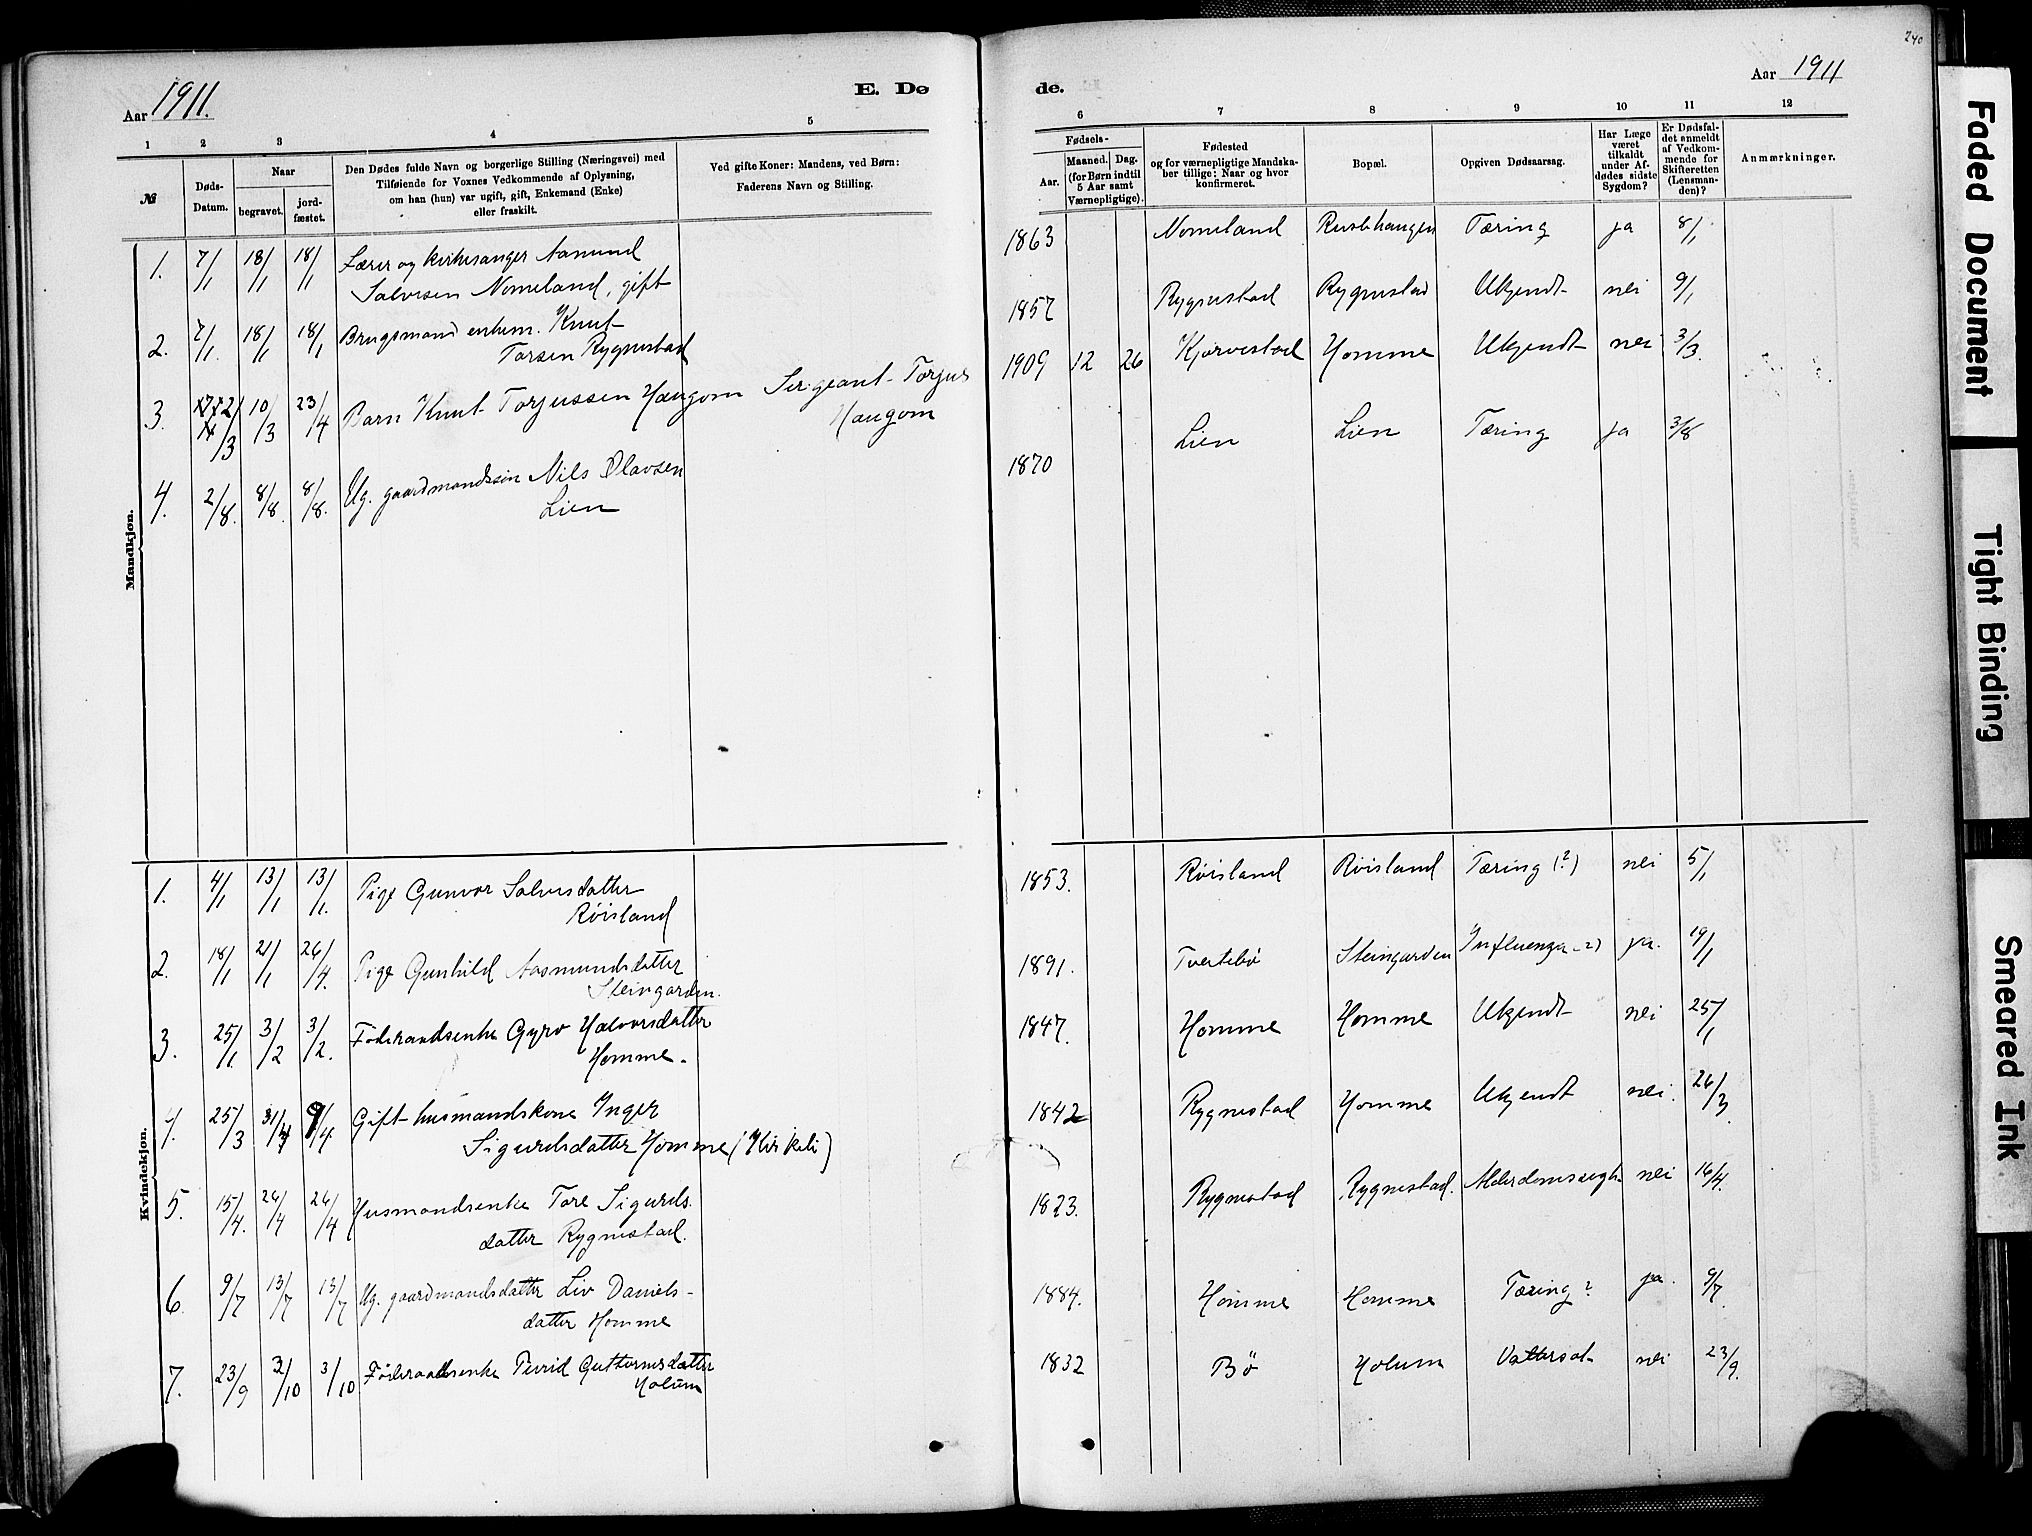 240
Aar 1911.
E. Dø
de.
Aar 1911
1 2 3 4 5
6 7 8 9 10 11 12
№
Døds-
Datum.
Naar
begravet.
jord-
fæstet.
Den Dødes fulde Navn og borgerlige Stilling (Næringsvei) med
Tilføiende for Voxnes Vedkommende af Oplysning,
om han (hun) var ugift, gift, Enkemand (Enke)
eller fraskilt.
Ved gifte Koner: Mandens, ved Børn:
Faderens Navn og Stilling.
Fødsels-
Aar.
Maaned.
Dag.
(for Børn indtil
5 Aar samt
Værnepligtige).
Fødested
og for værnepligtige Mandska-
ber tillige: Naar og hvor
konfirmeret.
Bopæl.
Opgiven Dødsaarsag.
Har Læge
været
tilkaldt
under Af-
dødes sidste
Sygdom?
Er Dødsfal-
det anmeldt
af Vedkom-
mende for
Skifteretten
(Lensman-
den)?
Anmærkninger.
Mandkjøn.
1. 7/1 18/1 18/1 Lærer og kirkesanger Aamund
Salvesen Nomeland, gift
1863 Nomeland Rustehaugen Tæring ja 8/1
2. 7/1. 18/1 18/1 Brugsmand enkem. Knut
Torsen Rygnestad
1857 Rygnestad Rygnestad Ukjendt nei 9/1
3. 2/3 10/3 23/4 Barn Knut Torjussen Haugom Sergeant Torjus
Haugom
1909 12 26 Kjørvestad Homme Ukjendt nei 3/3.
4. 2/8. 8/8. 8/8. Ug. gaardmandssøn Nils Olavsen
Lien
1870 Lien Lien Tæring ja 3/8
Kvindekjøn.
1. 4/1 13/1 13/1. Pige Gunvor Salvesdatter
Røisland
1853. Røisland Røisland Tæring (?) nei 5/1
2. 18/1 21/1 26/4. Pige Gunhild Aasmundsdatter
Steingarden.
1891. Tveitebø Steingarden Influenza ja. 19/1
3. 25/1. 3/2 3/2. Føderaadsenke Gyro Halvorsdatter
Homme.
1847. Homme Homme Ukjendt nei 25/1
4. 25/3 31/3 9/4. Gift husmandskone Inger
Sigurdsdatter Homme (Kirkeli)
1842 Rygnestad Homme Ukjendt nei. 26/3.
5. 15/4. 26/4 26/4 Husmandsenke Tore Sigurds.
datter Rygnestad.
1823. Rygnestad Rygnestad. Alderdomssvagh. nei 16/4.
6. 9/7 13/7 13/7 Ug. gaardmandsdatter Liv Daniels-
datter Homme
1884. Homme Homme Tæring? ja. 9/7.
7. 23/9 3/10 3/10 Føderaadsenke Turid Guttormsdatter
Holum
1832 Bø Holum Vattersot nei 23/9.
Faded Document
Tight Binding
Smeared Ink